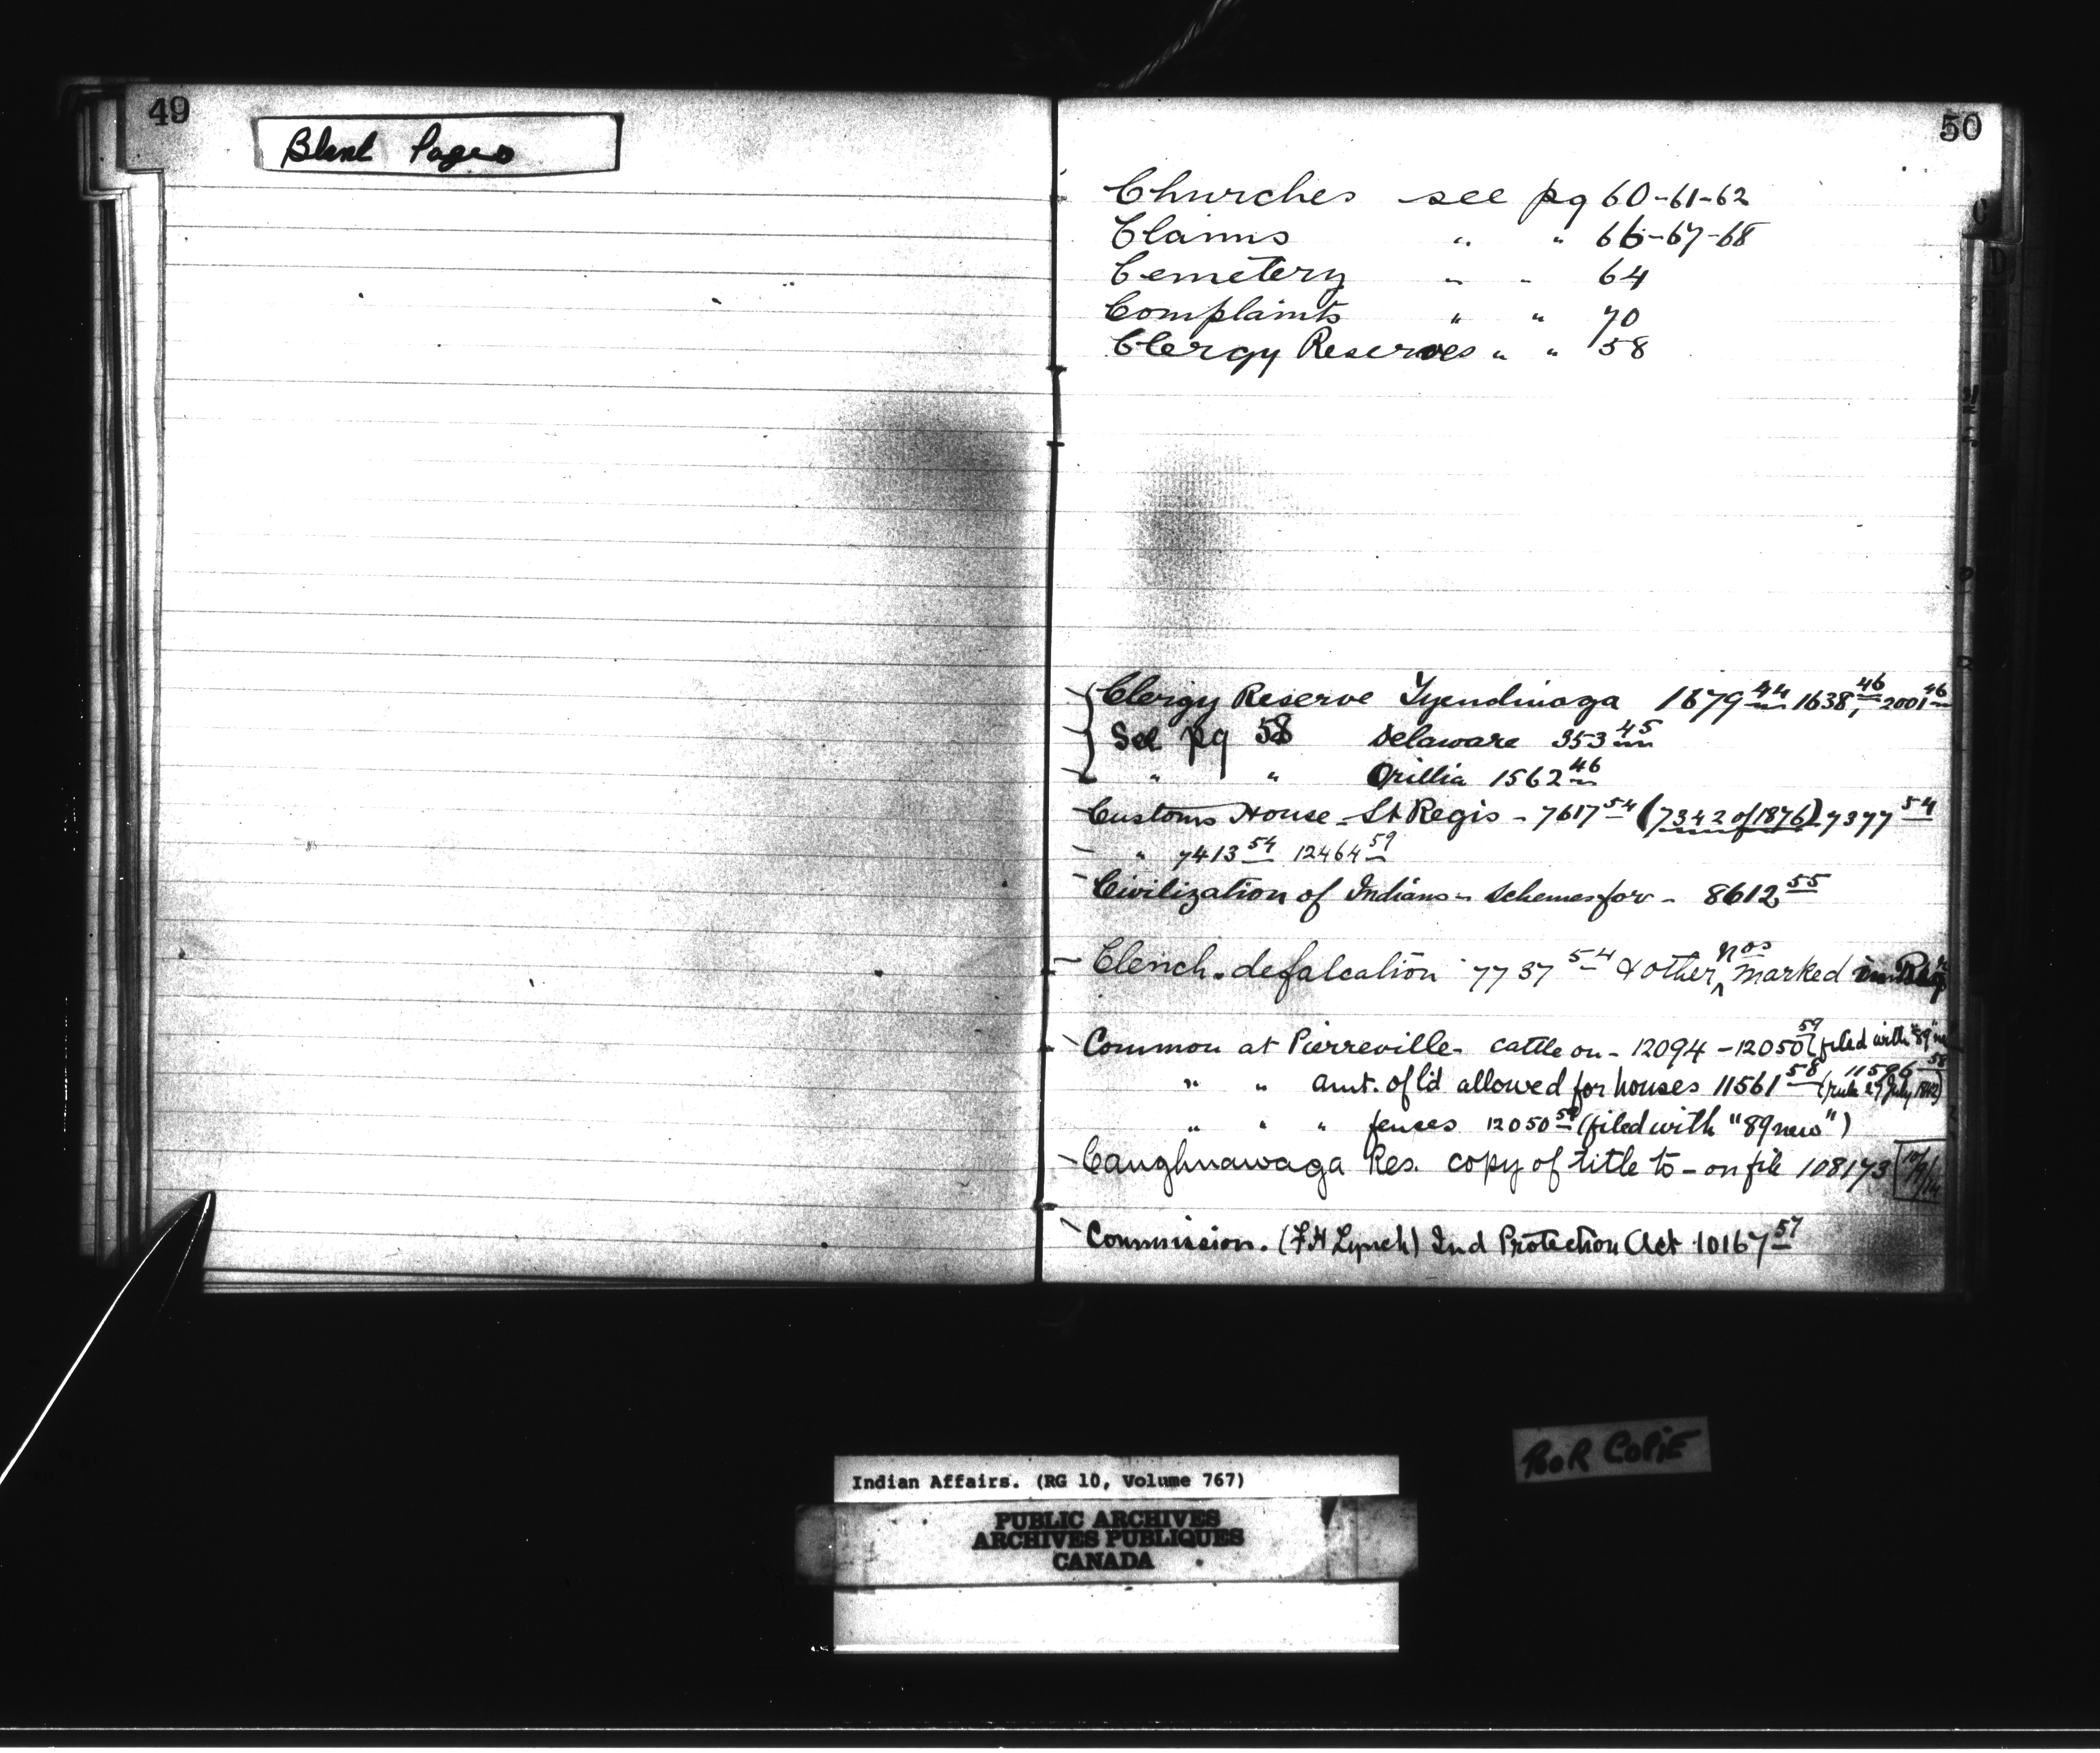 49
Blank Pages
50
Churches see pg 60-61-62
Claims " " 66-67-68
Cemetery " " 64
Complaints " " 70
Clergy Reserves " " 58
Clergy Reserve Tyendinaga 1679 44 1638 46, 2001 46
See pg 58 Delaware 353 45
" " Orillia 1562 46
Customs House - St Regis - 7617 54 (7342 of 1876) 7377 54
" 7413 54 12464 59
Civilization of Indians - schemes for - 8612 55
Clench. defalcation 7737 54 & other nos marked in Reg
Common at Pierreville - cattle on - 12094 - 12050 59 (filed with "89
" " amt. of ld allowed for houses 11561 58 11596 58 (rule 27 July
" " " fences 12050 59 (filed with "89 new")
Caughnawaga Res. copy of title to - on file 108173 10/9/14
Commission. (F H Lynch) Ind Protection Act 10167 57
Indian Affairs. (RG 10, Volume 767)
PUBLIC ARCHIVES
ARCHIVES PUBLIQUES
CANADA
POOR COPIE